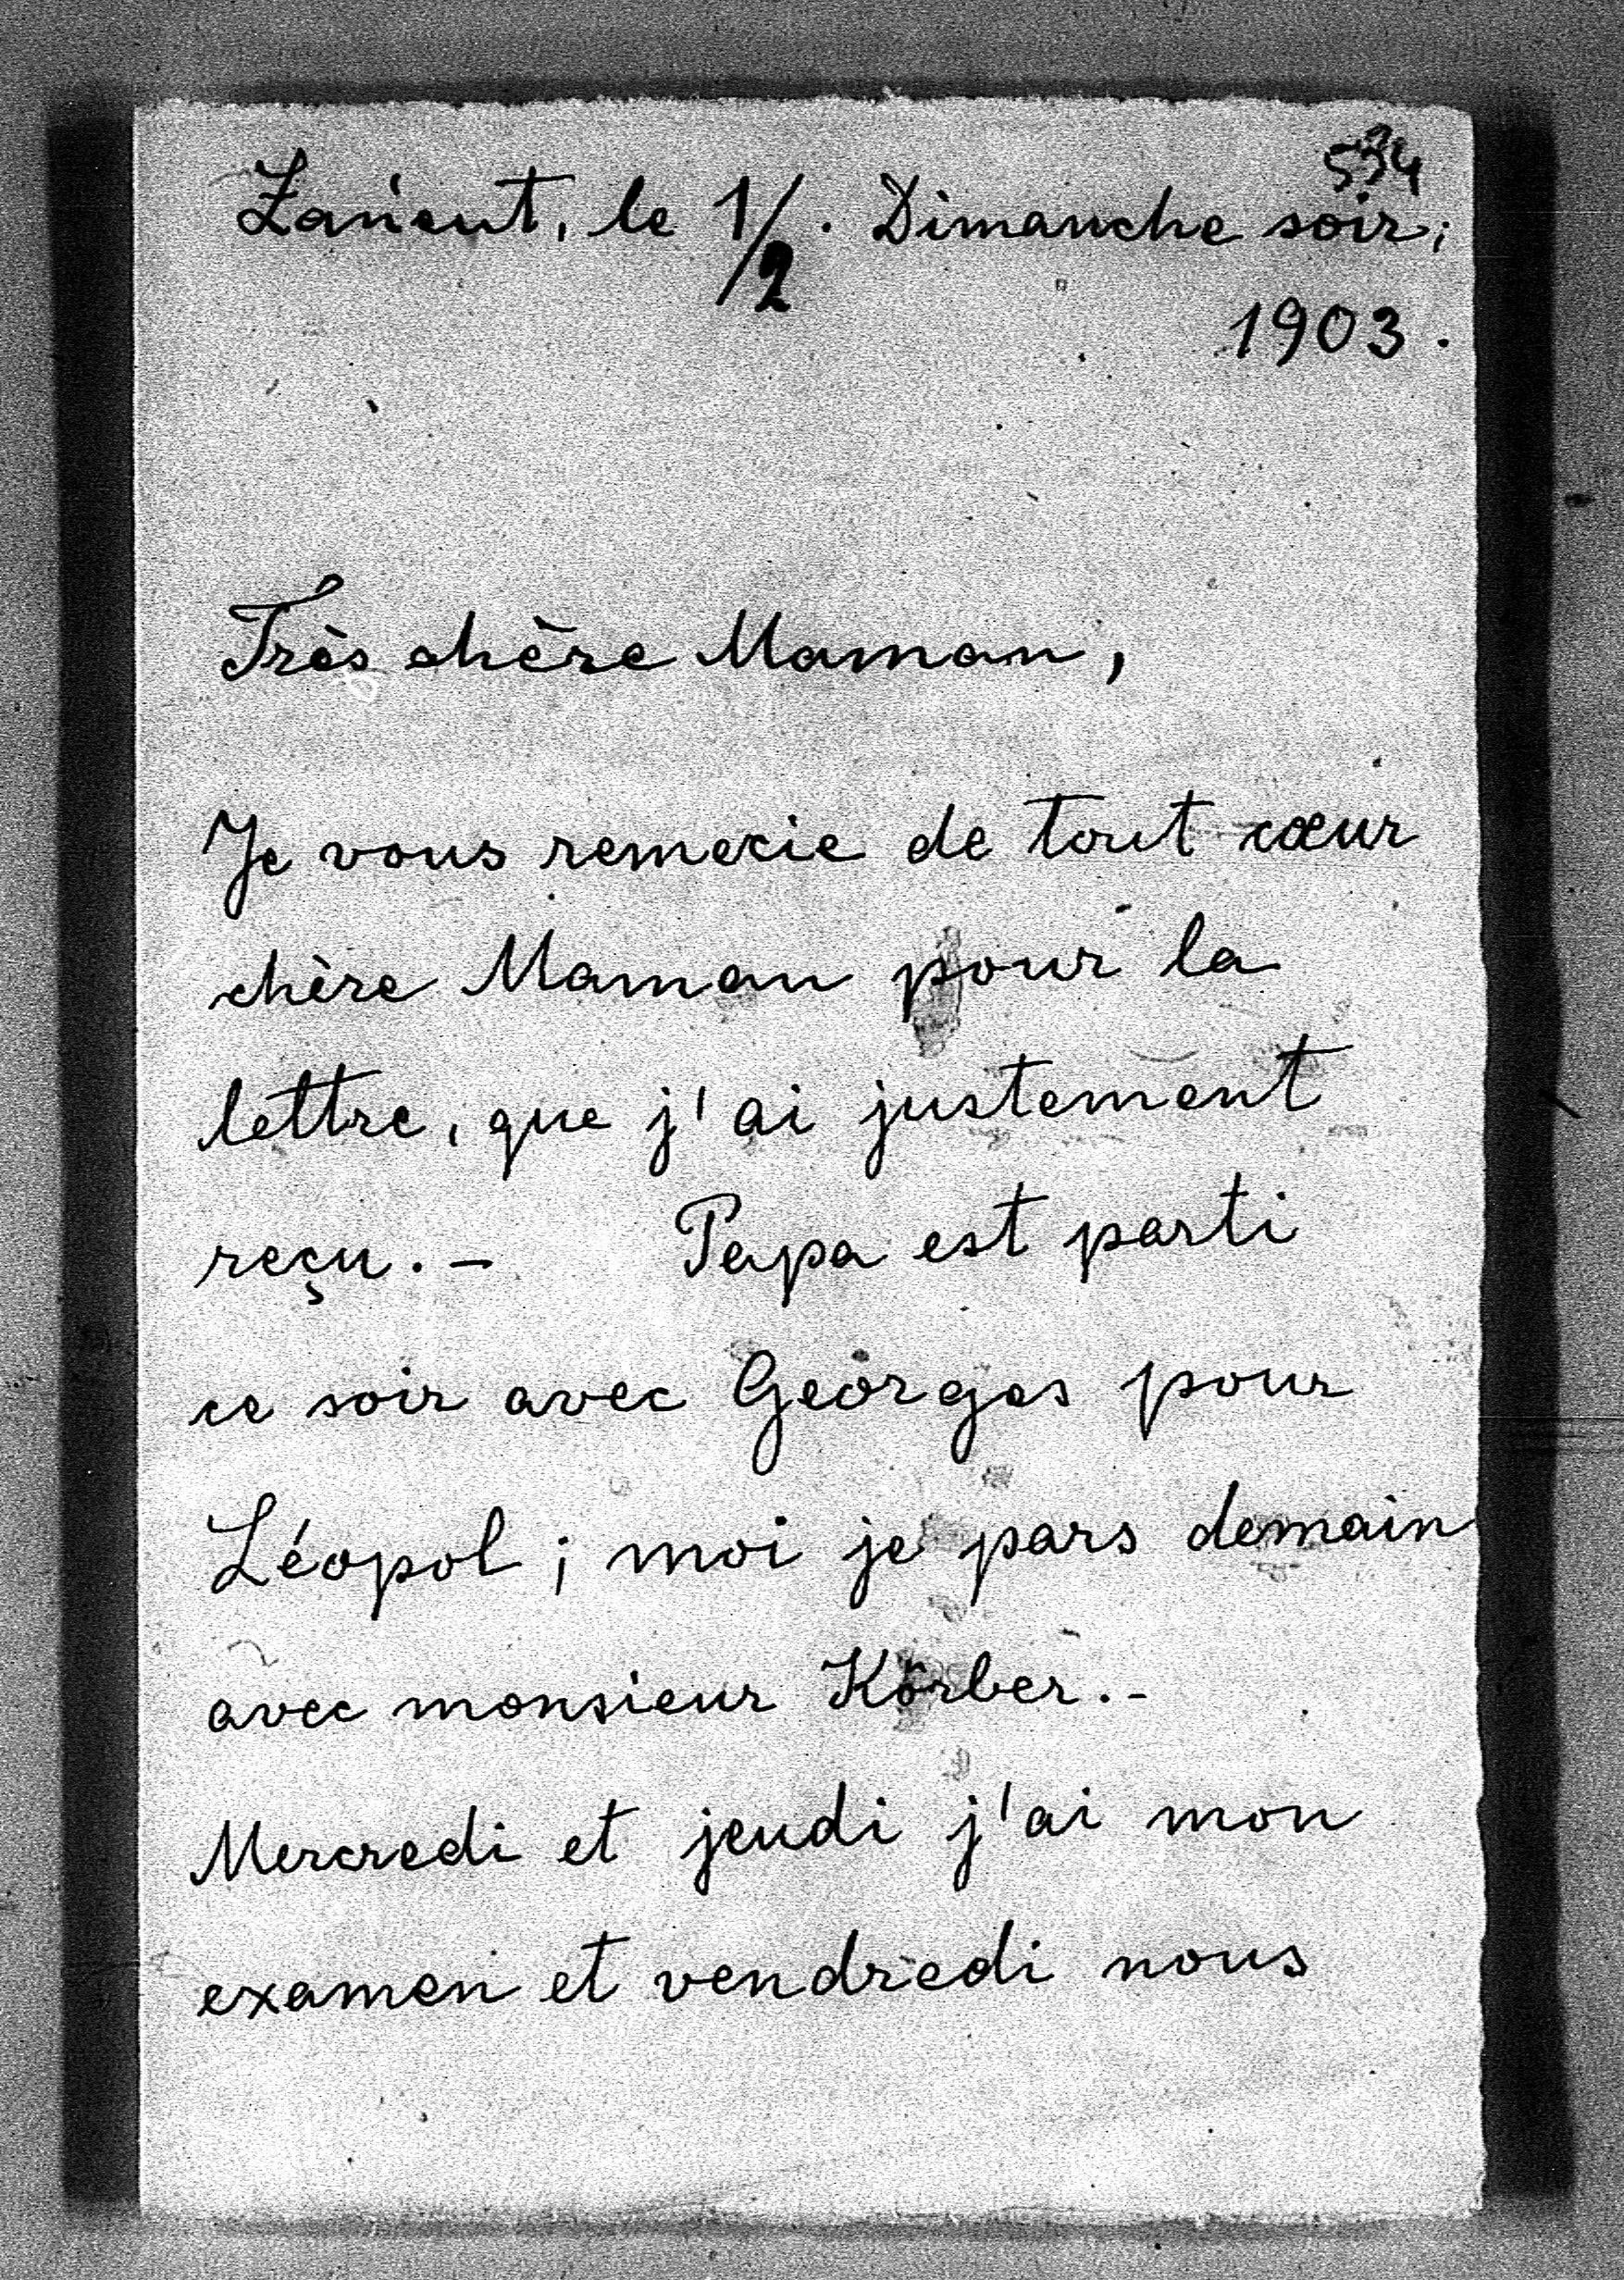 534
Łańcut, le 1/2. Dimanche soir;
1903.
Très chère Maman,
Je vous remecie de tout cœur
chère Maman pour la
lettre, que j'ai justement
reçu. –    Papa est parti
ce soir avec Georges pour
Léopol; moi je pars demain
avec monsieur Körber. –
Mercredi et jeudi j'ai mon
examen et vendredi nous